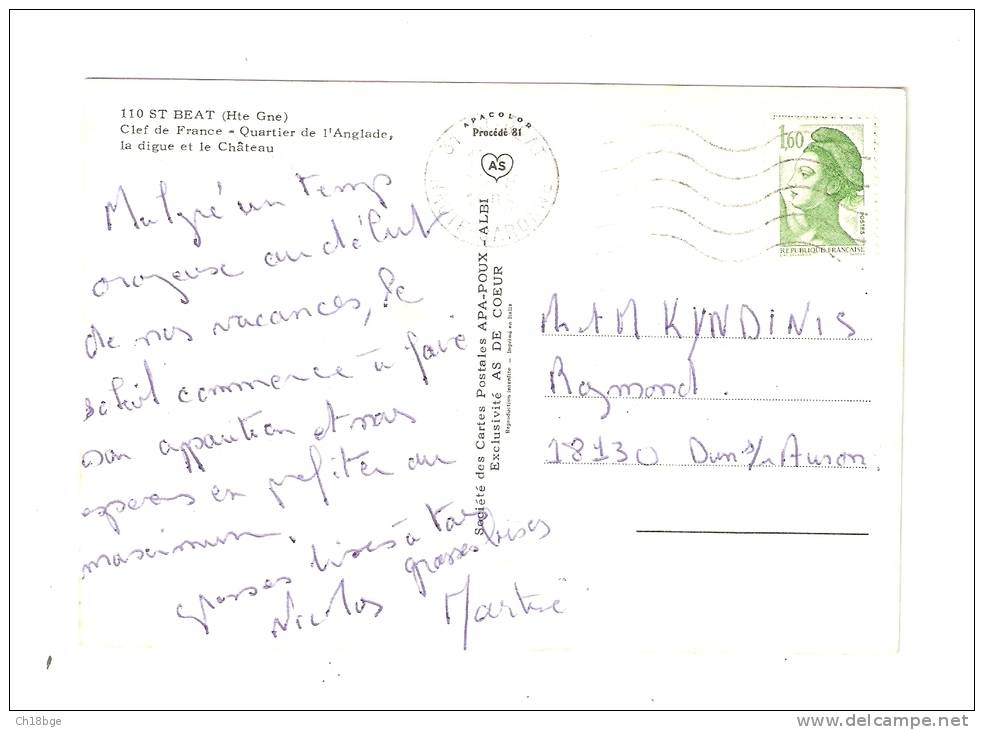 110 ST BEAT (Hte Gne)
Clef de France - Quartier de l'Anglade,
la digue et le Château
Malgré un temps
orageux au début
de nos vacances, le
soleil commence à faire
son apparition et nous
esperons en profiter au
maximum.
grosses bises à tous
grosses bises
Nicolas Martine
APACOLOR
Procédé 81
AS
Société des Cartes Postales APA-POUX - ALBI
Exclusivité AS DE COEUR
Reproduction interdite - Imprimé en Italie
1,60
POSTES
REPUBLIQUE FRANÇAISE
M et M KYNDINIS
Raymond.
18130 Dun s/ Auron
Ch18bge
delcampe.net